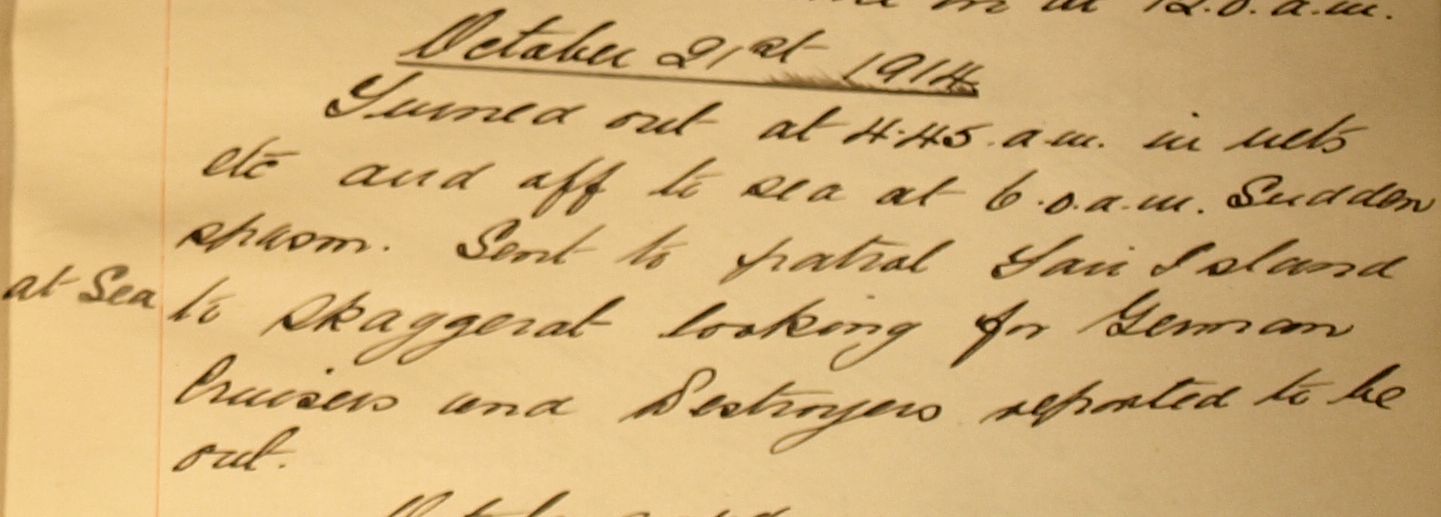 in at 12.0.a.m.
October 21st 1914
Turned out at 4.45.a.m. in nets
etc and off to sea at 6.0.a.m. Sudden
spasm. Sent to patrol Fair Island
at Sea
to Skaggerat looking for German
Cruisers and Destroyers reported to be
out.
October